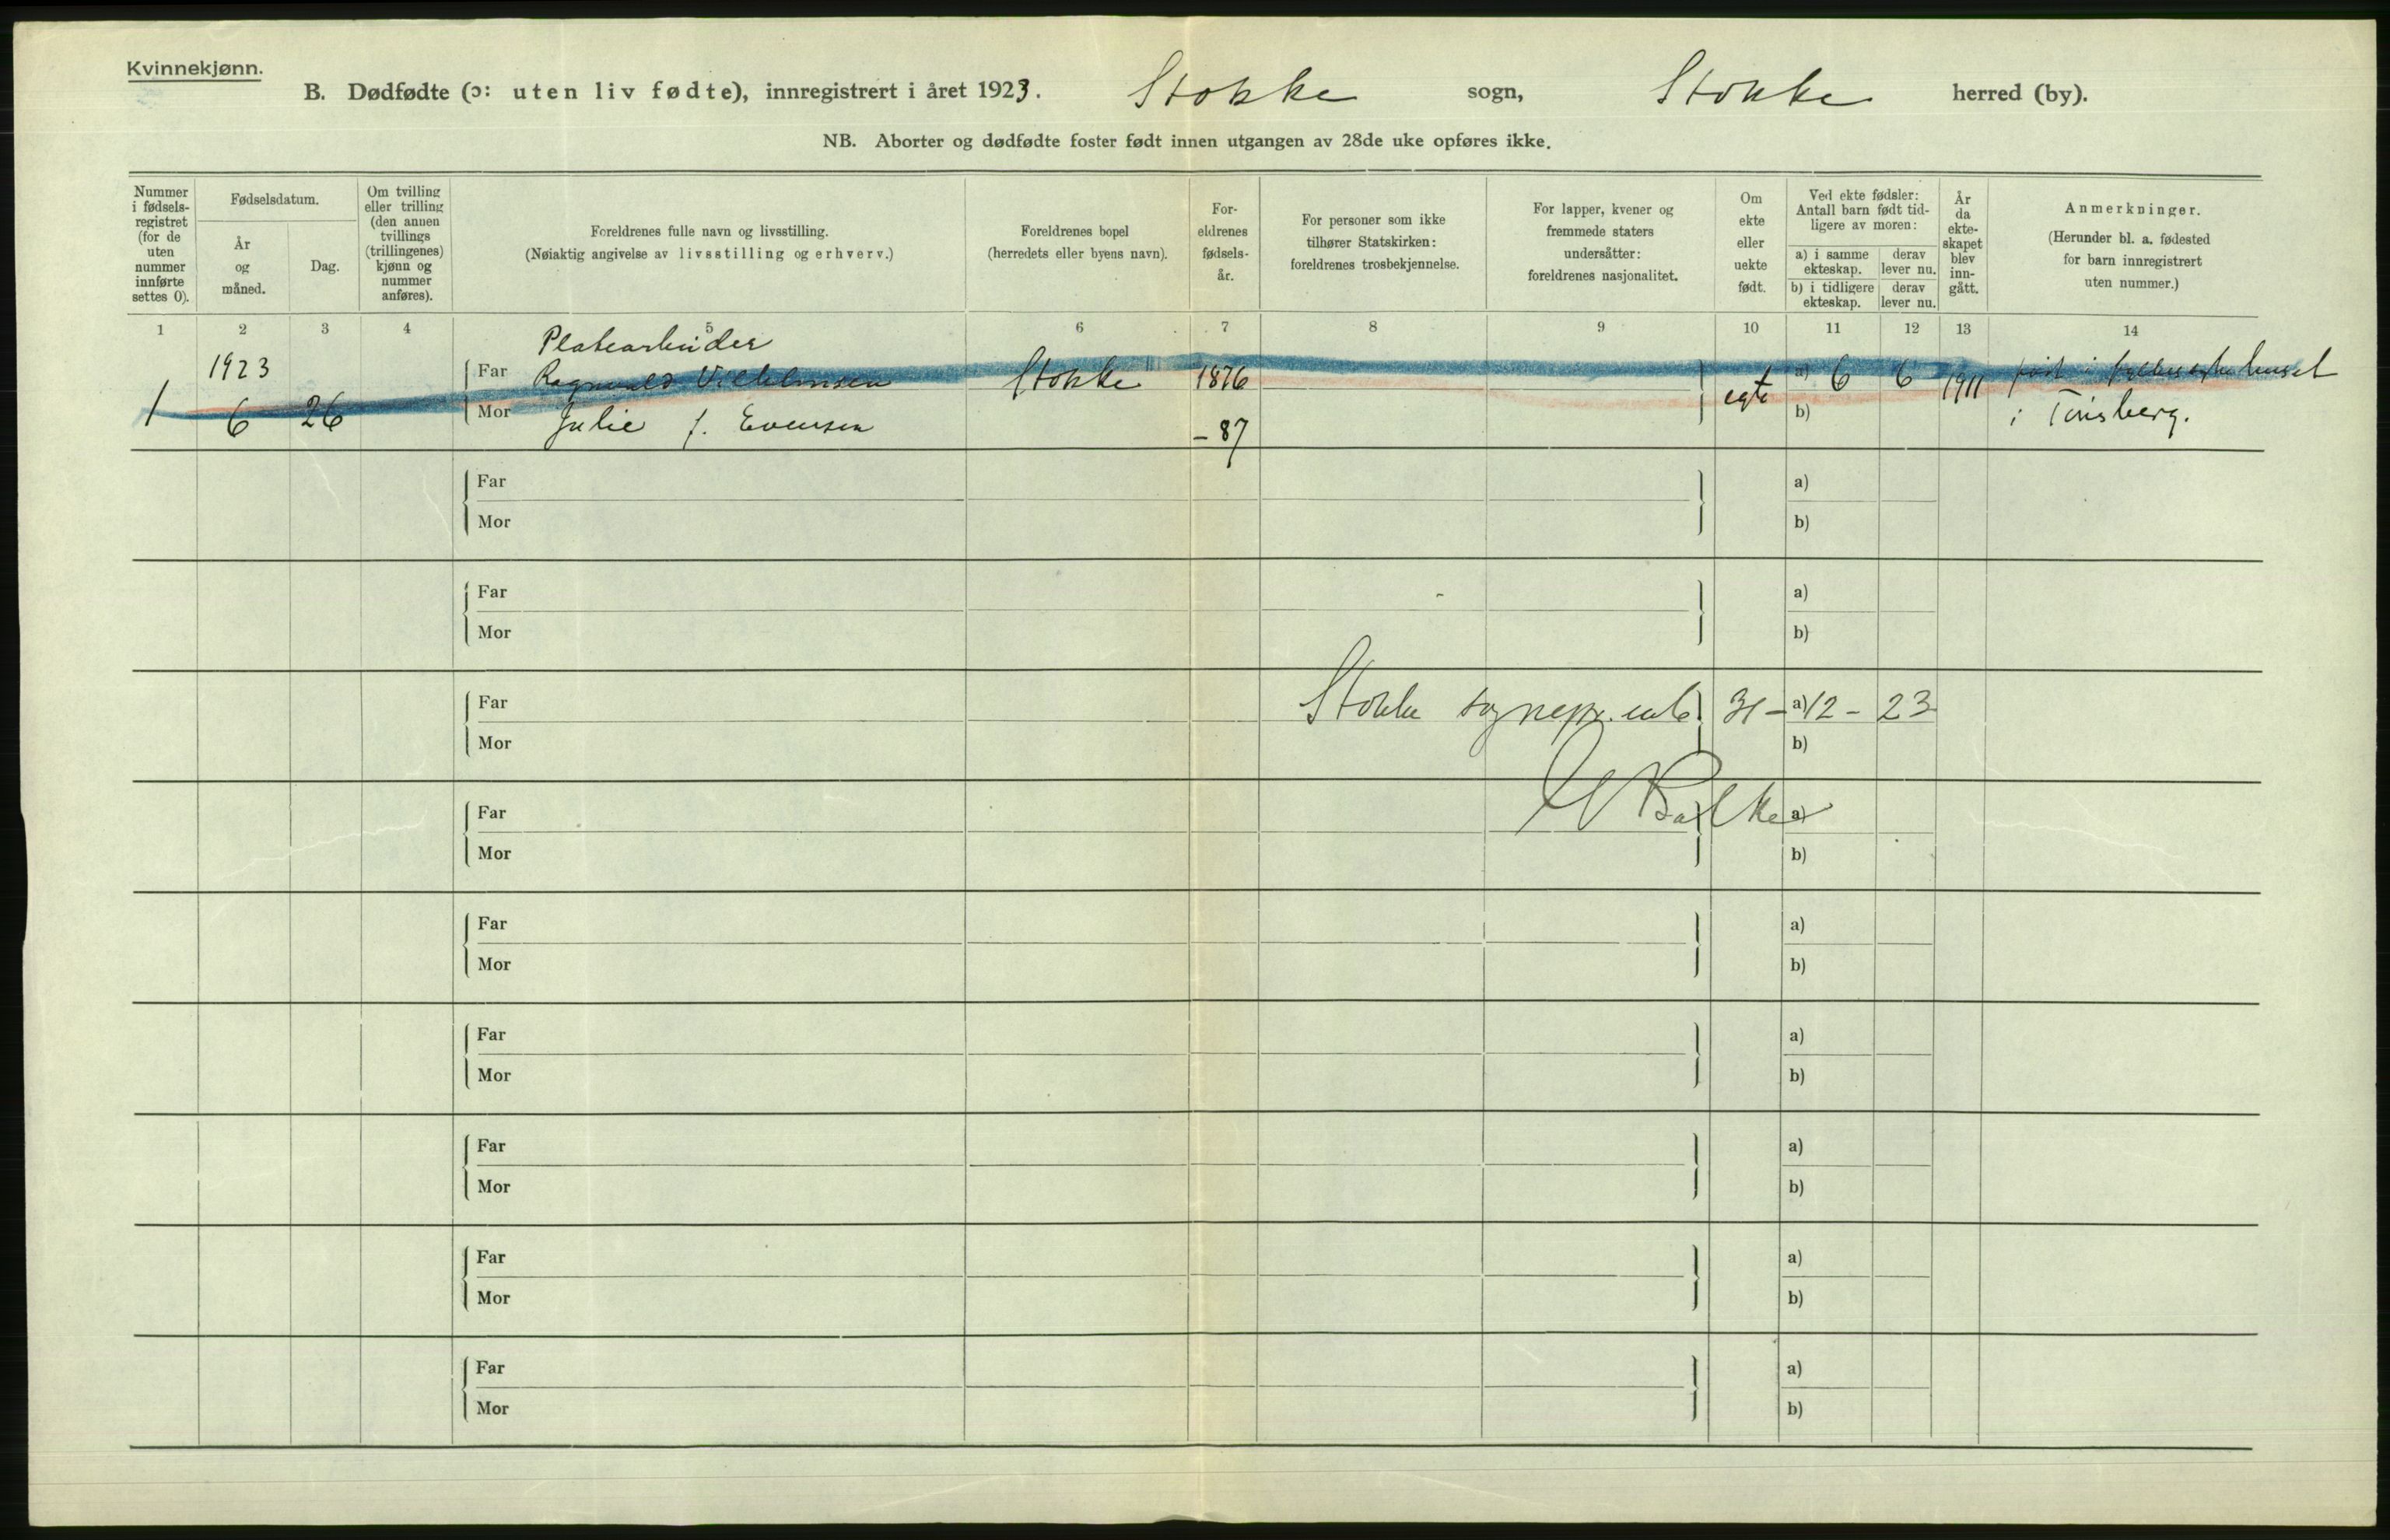 Kvinnekjønn.
B. Dødfødte (ɔ: uten liv fødte), innregistrert i året 1923. Stokke sogn, Stokke herred (by).
NB. Aborter og dødfødte foster født innen utgangen av 28de uke opføres ikke.
Nummer i fødsels-registret (for de uten nummer innførte settes 0).
Fødselsdatum.
År og måned.
Dag.
Om tvilling eller trilling (den annen tvillings (trillingenes) kjønn og nummer anføres).
Foreldrenes fulle navn og livsstilling.
(Nøiaktig angivelse av livsstilling og erhverv.)
Foreldrenes bopel
(herredets eller byens navn).
For-eldrenes fødsels-år.
For personer som ikke tilhører Statskirken: foreldrenes trosbekjennelse.
For lapper, kvener og fremmede staters undersåtter: foreldrenes nasjonalitet.
Om ekte eller uekte født.
Ved ekte fødsler: Antall barn født tid-ligere av moren:
a) i samme ekteskap. derav lever nu.
b) i tidligere ekteskap. derav lever nu.
År da ekte-skapet blev inn-gått.
Anmerkninger.
(Herunder bl. a. fødested for barn innregistrert uten nummer.)
1 2 3 4 5 6 7 8 9 10 11 12 13 14
Platearbeider
1923 Far Ragnvald Vilhelmsen Stokke 1876 egte a) 6 6 1911 født i
1 6 26 Mor Julie f. Evensen - 87 b) i Tønsberg.
Far a)
Mor b)
Far a)
Mor b)
Far Stokke sognepr. emb. 31 - a) 12 - 23
Mor b)
Far a)
Mor b)
Far a)
Mor b)
Far a)
Mor b)
Far a)
Mor b)
Far a)
Mor b)
Far a)
Mor b)